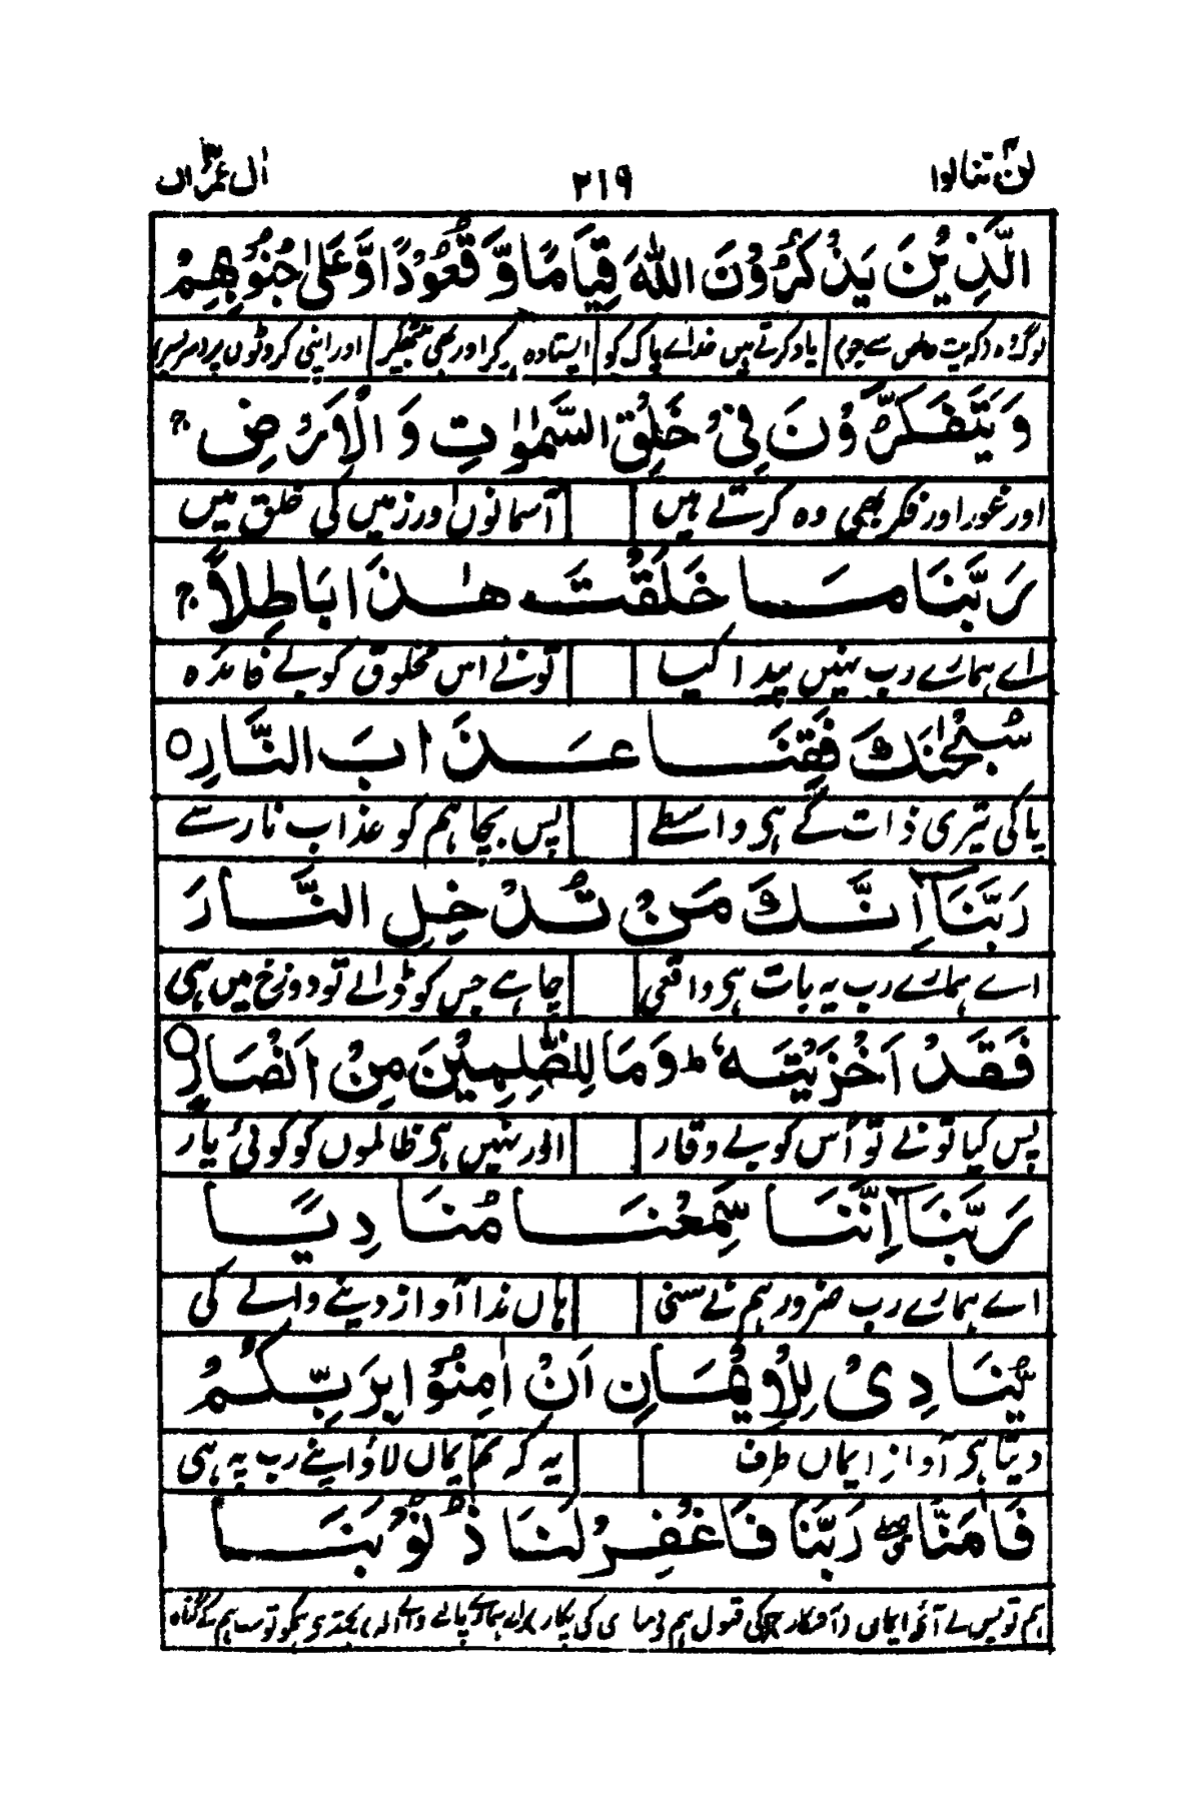 لن تنالوا ۲۱۹ ال عمران
الَّذِیْنَ یَذْكُرُوْنَ اللهَ قِیَامًا وَّ قُعُوْدًا وَّ عَلٰى جُنُوْبِهِمْ
یاد کرتے ہیں خداے پاک کو ایستادہ اور بھی اور اپنی کروٹوں پر
وَ یَتَفَكَّرُوْنَ فِیْ خَلْقِ السَّمٰوٰتِ وَ الْاَرْضِ ۚ
اور غور اور فکر بھی وہ کرتے ہیں آسمانوں اور زمیں کی خلق میں
رَبَّنَا مَا خَلَقْتَ هٰذَا بَاطِلًا ۚ
اے ہمارے رب نہیں پیدا کیا تونے اس مخلوق کو بے فائدہ
سُبْحٰنَكَ فَقِنَا عَذَابَ النَّارِ ○
پاکی تیری ذات کے ہی واسطے پس بچا ہم کو عذاب نار سے
رَبَّنَاۤ اِنَّكَ مَنْ تُدْخِلِ النَّارَ
اے ہمارے رب یہ بات ہی واقعی چاہے جس کو ڈالے تو دوزخ میں ہی
فَقَدْ اَخْزَیْتَهٗ ؕ وَ مَا لِلظّٰلِمِیْنَ مِنْ اَنْصَارٍ ○
پس کیا تونے تو اُس کو بے وقار اور نہیں ہی ظالموں کو کوئی یار
رَبَّنَاۤ اِنَّنَا سَمِعْنَا مُنَادِیًا
اے ہمارے رب ضرور ہم نے سنی ہاں ندا آواز دینے والے کی
یُّنَادِیْ لِلْاِیْمَانِ اَنْ اٰمِنُوْا بِرَبِّكُمْ
دیتا ہی آواز ایماں طرف یہ کہ تم ایماں لاؤ اپنے رب پہ ہی
فَاٰمَنَّا ۖۗ رَبَّنَا فَاغْفِرْ لَنَا ذُنُوْبَنَا
ہم تو پس لے آئے ایماں کی قبول ہم